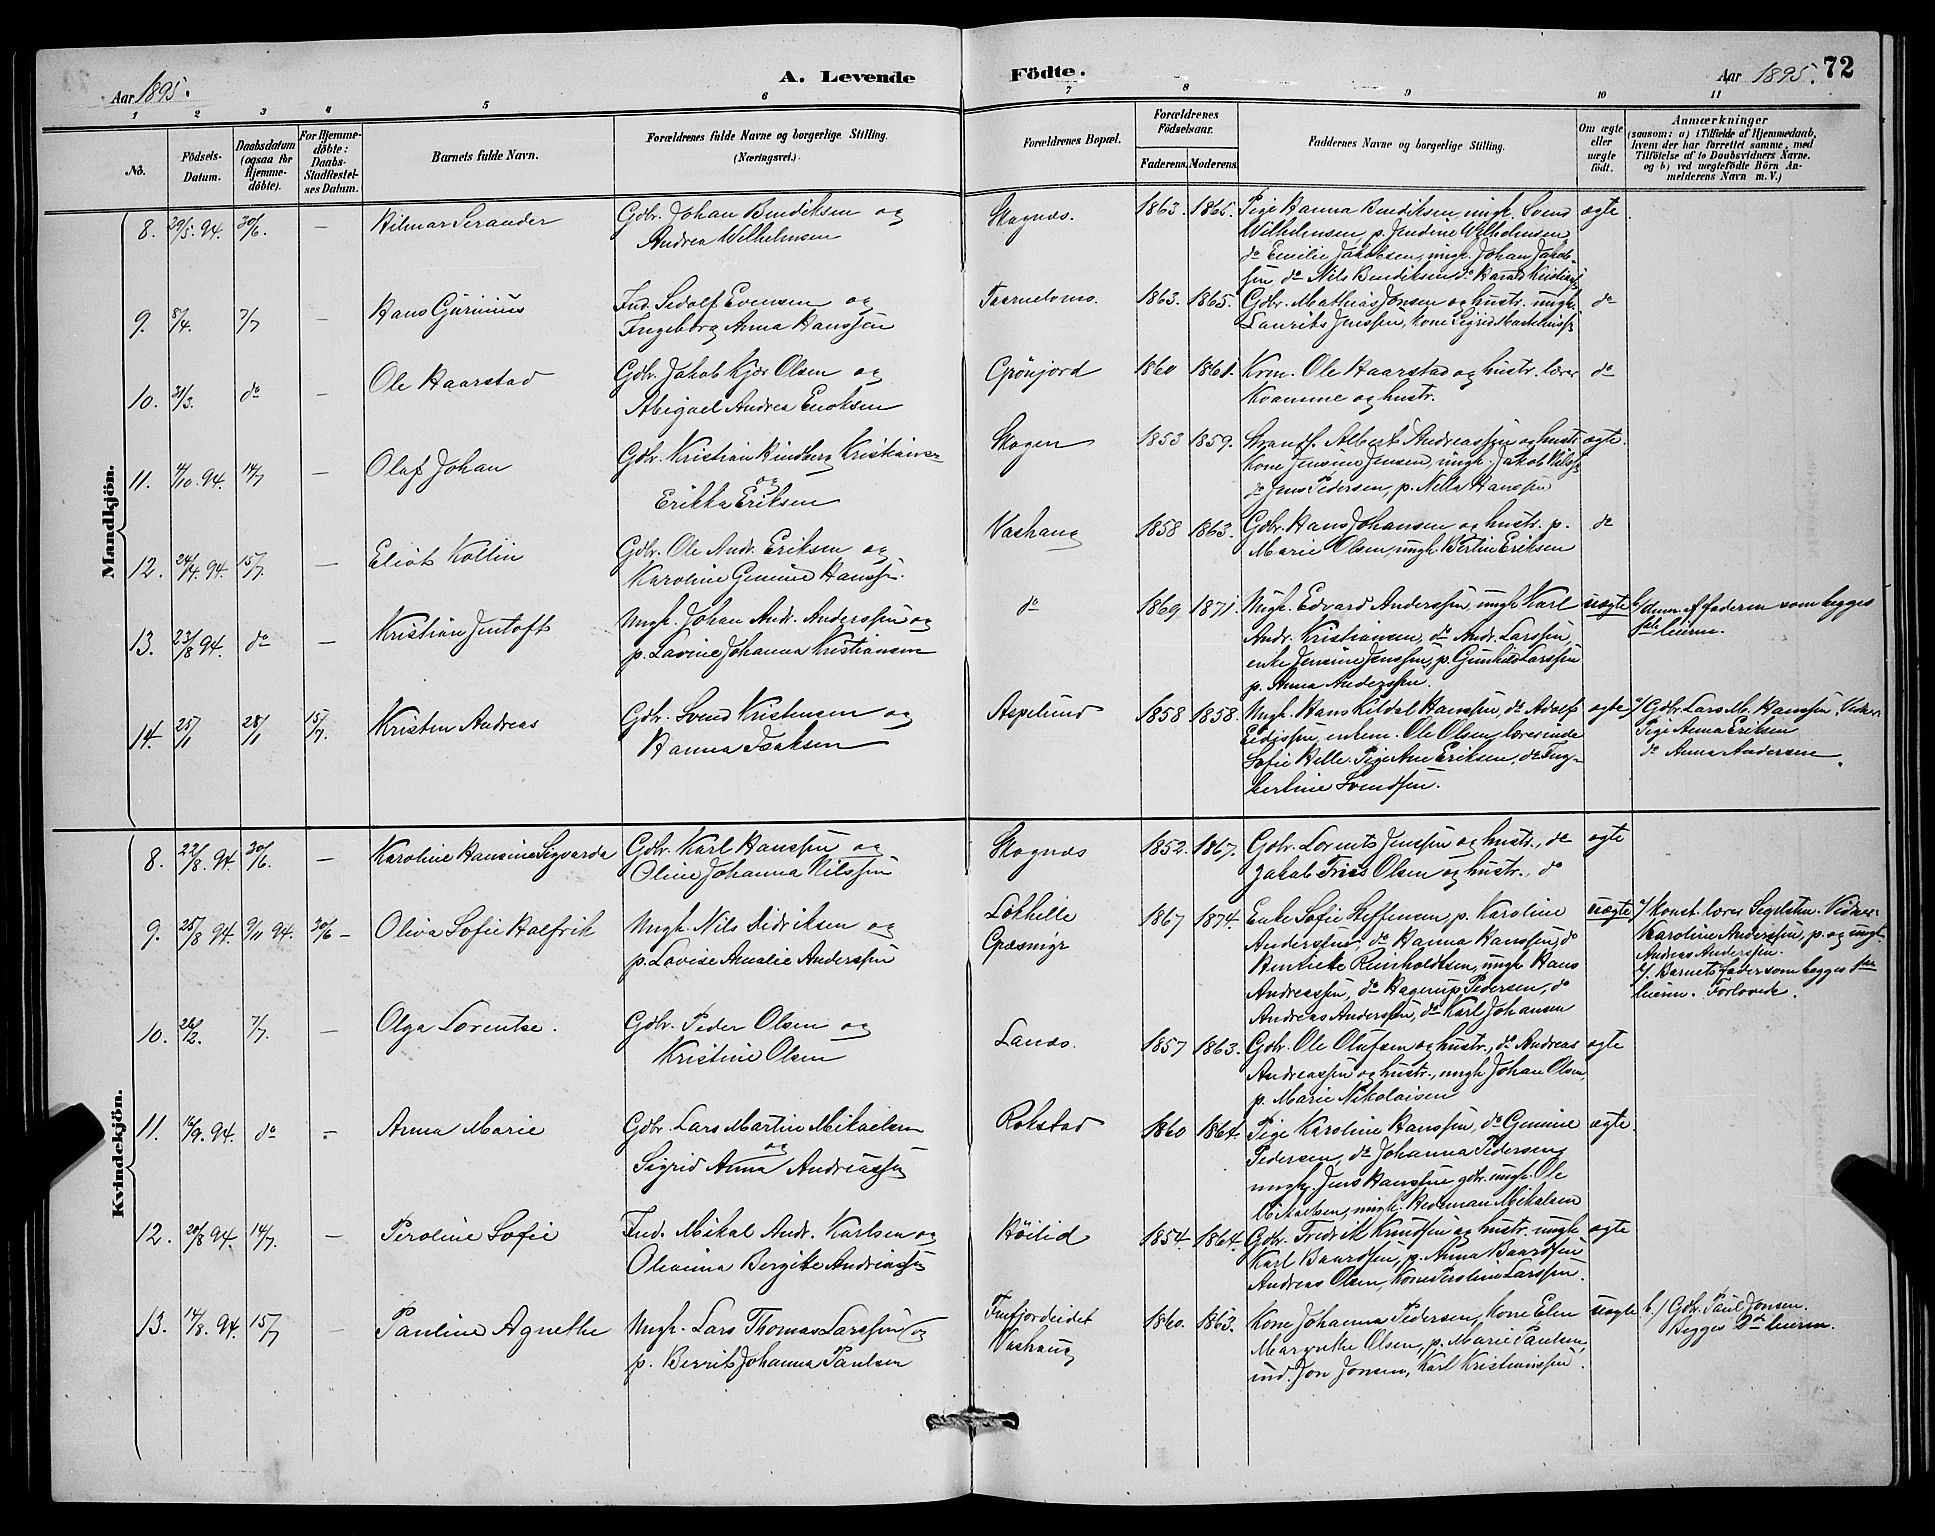 Aar 1895.
A. Levende
Födte.
Aar 1895. 72
1 2 3 4 5 6 7 8 9 10 11
No.
Födsels-
Datum.
Daabsdatum
(ogsaa for
Hjemme-
döbte).
For Hjemme-
döbte:
Daabs-
Stadfæstel-
ses Datum.
Barnets fulde Navn.
Forældrenes fulde Navne og borgerlige Stilling.
(Næringsvei.)
Forældrenes Bopæl.
Forældrenes
Födselsaar.
Faderens. Moderens.
Faddernes Navne og borgerlige Stilling.
Om ægte
eller
uægte
födt.
Anmærkninger
(saasom: a) i Tilfælde af Hjemmedaab,
hvem der har forrettet samme, med
Tilföielse af to Daabsvidners Navne.
og b) ved uægtefödte Börn An-
melderens Navn m. V.)
Mandkjön.
8. 29/5. 94. 30/6. —
Hilmar Serander
Gdbr. Johan Bendiksen og
Andrea Wilhelmsen
Skognæs.
1863. 1865.
Pige Hanna Bendiksen, ungk. Svend
Wilhelmsen, p. Jendine Wilhelmsen
do Emilie Jakobsen, ungk. Johan Jakob-
sen do Nils Bendiksen do Harald
ægte
9. 8/4. 7/7 —
Hans Gürinius
Ind. Sedolf Evensen og
Ingeborg Anna Hanssen
1863. 1865.
Gdbr. Mathias Jonsen og hustr. ungk.
Laurits Jenssen, Kone Sigrid
do
10. 31/3. do —
Ole Haarstad
Gdbr. Jakob Kjör Olsen og
Abigael Andrea Enoksen
Grönjord
1860 1861.
Krm. Ole Haarstad og hustr. lærer
Kvamme og hustr.
do
11. 4/10. 94. 14/7 —
Olaf Johan
Gdbr. Kristian Hindberg Kristiansen
og
Erikka Eriksen
Skogen
1853 1859.
Strands. Albert Andreassen og hustr.
Kone Jensine Jensen, ungk. Jakob Nilss.
do Jens Pedersen, p. Nella Hanssen
ægte.
12. 24/4. 94. 15/7. —
Eliot Kollin
Gdbr. Ole Andr. Eriksen og
Karoline Gunine Hanss.
Vashaug
1858 1863.
Gdbr. Hans Johansen og hustr. p.
Marie Olsen, ungk. Bertin Eriksen
do
13. 23/8 94. do —
Kristian Jentoft
Ungk. Johan Andr. Anderssen og
p. Lavine Johanna Kristiansen
do
1869 1871.
Ungk. Edvard Anderssen, ungk Karl
Andr. Kristiansen, do Andr. Larssen
enke Jensine Jenssen, p. Gunhild Larssen
p. Anna Anderssen.
uægte
b/ Anm. af faderen som begges
1ste leierm.
14. 25/1 28/1 15/7.
Kristen Andreas
Gdbr. Svend Kristensen og
Hanna Isaksen
Aspelund
1858 1858.
Ungk. Hans Kildal Hanssen, do Adolf
Eidissen, enkem. Ole Olsen, lærerinde
Sofie Helle. Pige Ane Eriksen, do Ing-
bertine Svendsen.
ægte
a/ Gdbr. Lars M. Hanssen. Vidner
Pige Anna Eriksen
do Anna Andersen.
Kvindekjön.
8. 22/8. 94. 30/6. —
Karoline Hansine Sigvarda
Gdbr. Karl Hanssen og
Oline Johanna Nilssen
Skognæs
1852. 1867.
Gdbr. Lorents Jenssen og hustr., do
Jakob Friis Olsen og hustr., do
ægte
9. 25/8 94. 9/11 94. 30/6 —
Oliva Sofie Halfrik
Ungk. Nils Didriksen og
p. Lovise Amalie Anderssen
Lökhelle
Græsmyr
1867 1874.
Enke Sofie Steffensen, p. Karoline
Anderssen, do Hanna Hanssen, do
Henrikke Reinholdtsen, ungk Hans
Andreassen, do Hagerup Pedersen, do
Andreas Anderssen, do Karl Johansen
uægte
a/ Konst. lærer Segelsten. Vidner
Karoline Anderssen, p. og ungk.
Andreas Anderssen.
b/. Barnets fader som begges 1ste
leierm. Forlovede.
10. 26/2. 7/7. —
Olga Lorentse.
Gdbr. Peder Olsen og
Kristine Olsen
Lanæs.
1857 1863.
Gdbr. Ole Olufsen og hustr., do Andreas
Andreassen og hustr., ungk. Johan Olsen,
p. Marie Nikolaisen
ægte
11. 16/9. 94. do —
Anna Marie
Gdbr Lars Martin Mikaelsen
og
Sigrid Anna Andreassen
Rokstad
1860 1864.
Pige Karoline Hanssen, do Gunine
Pedersen, do Johanna Pedersen,
ungk. Jens Hanssen gdbr. ungk. Ole
Mikalsen, ungk. Hedeman Mikalsen
ægte.
12. 20/8 94. 14/7. —
Peroline Sofie
Ind. Mikal Andr. Karlsen og
Oleanna Bergitte Andreassen
Höilid
1854. 1864.
Gdbr. Fredrik Knudsen og hustr. ungk
Karl Baardsen, p. Anna Baardsen
Andreas Olsen, Kone Peroline Larssen.
ægte
13. 14/8. 94. 15/7 —
Pauline Agnethe
Ungk. Lars Thomas Larssen og
p. Berrit Johanna Paulsen
Finfjordeidet
Vashaug
1860. 1863.
Kone Johanna Pedersen, Kone Elen
Margrethe Olsen, p. Marie Paulsen,
ind. Jon Jonsen, Karl Kristianssen.
uægte
b./ Gdbr. Paul Jonsen.
Begges 2det leierm.